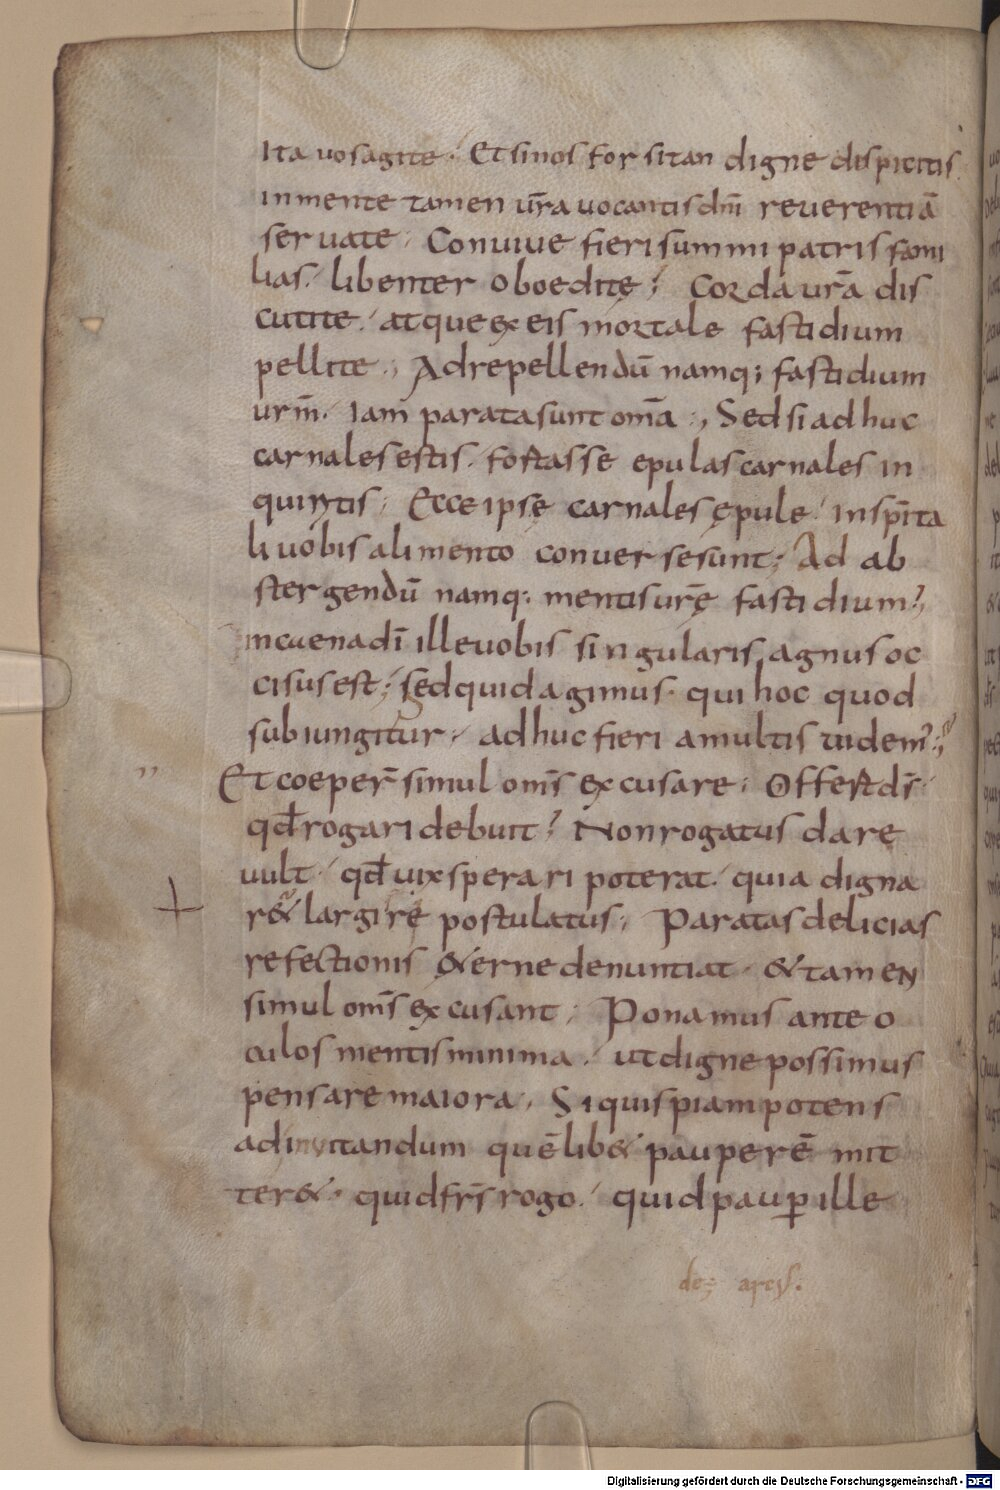 Ita vos agite. Et si nos forsitan digne dispicitis
in mente tamen ur̅a uocantis dm̅ reuerentiā
seruate. Conuiue fieri summi patris fami
lias. libenter oboedite; Corda ur̅a dis
cutite. atque ex eis mortale fastidium
pellite; Ad repellendū namq; fastidium
urm̅. Iam parata sunt om̅a; Sed si adhuc
carnales estis. fortasse epulas carnales in
quiritis; Ecce ipse carnales epule. in sp̅ita
li uobis alimento converse sunt; Ad ab
stergendū namq; mentis ur̅ę fastidium;
in cena dn̅i ille uobis singularis agnus oc
cisus est; sed quid agimus. qui hoc quod
subiungitur. adhuc fieri a multis uidem;
Et coeper̅ simul om̅s excusare; Offert ds̅
qd̅ rogari debuit; Non rogatus dare
uult. qd̅ uix sperari poterat. quia digna
r& largire postulatus; Paratas delicias
refectionis &erne denuntiat. & tamen
simul om̅s excusant; Ponamus ante o
culos mentis minima. ut digne possimus
pensare maiora; Si quispiam potens
ad inuitandum quēlib& pauperē mit
ter&. quid frs̅ rogo. quid paup̱ ille
Digitalisierung gefördert durch die Deutsche Forschungsgemeinschaft - DFG